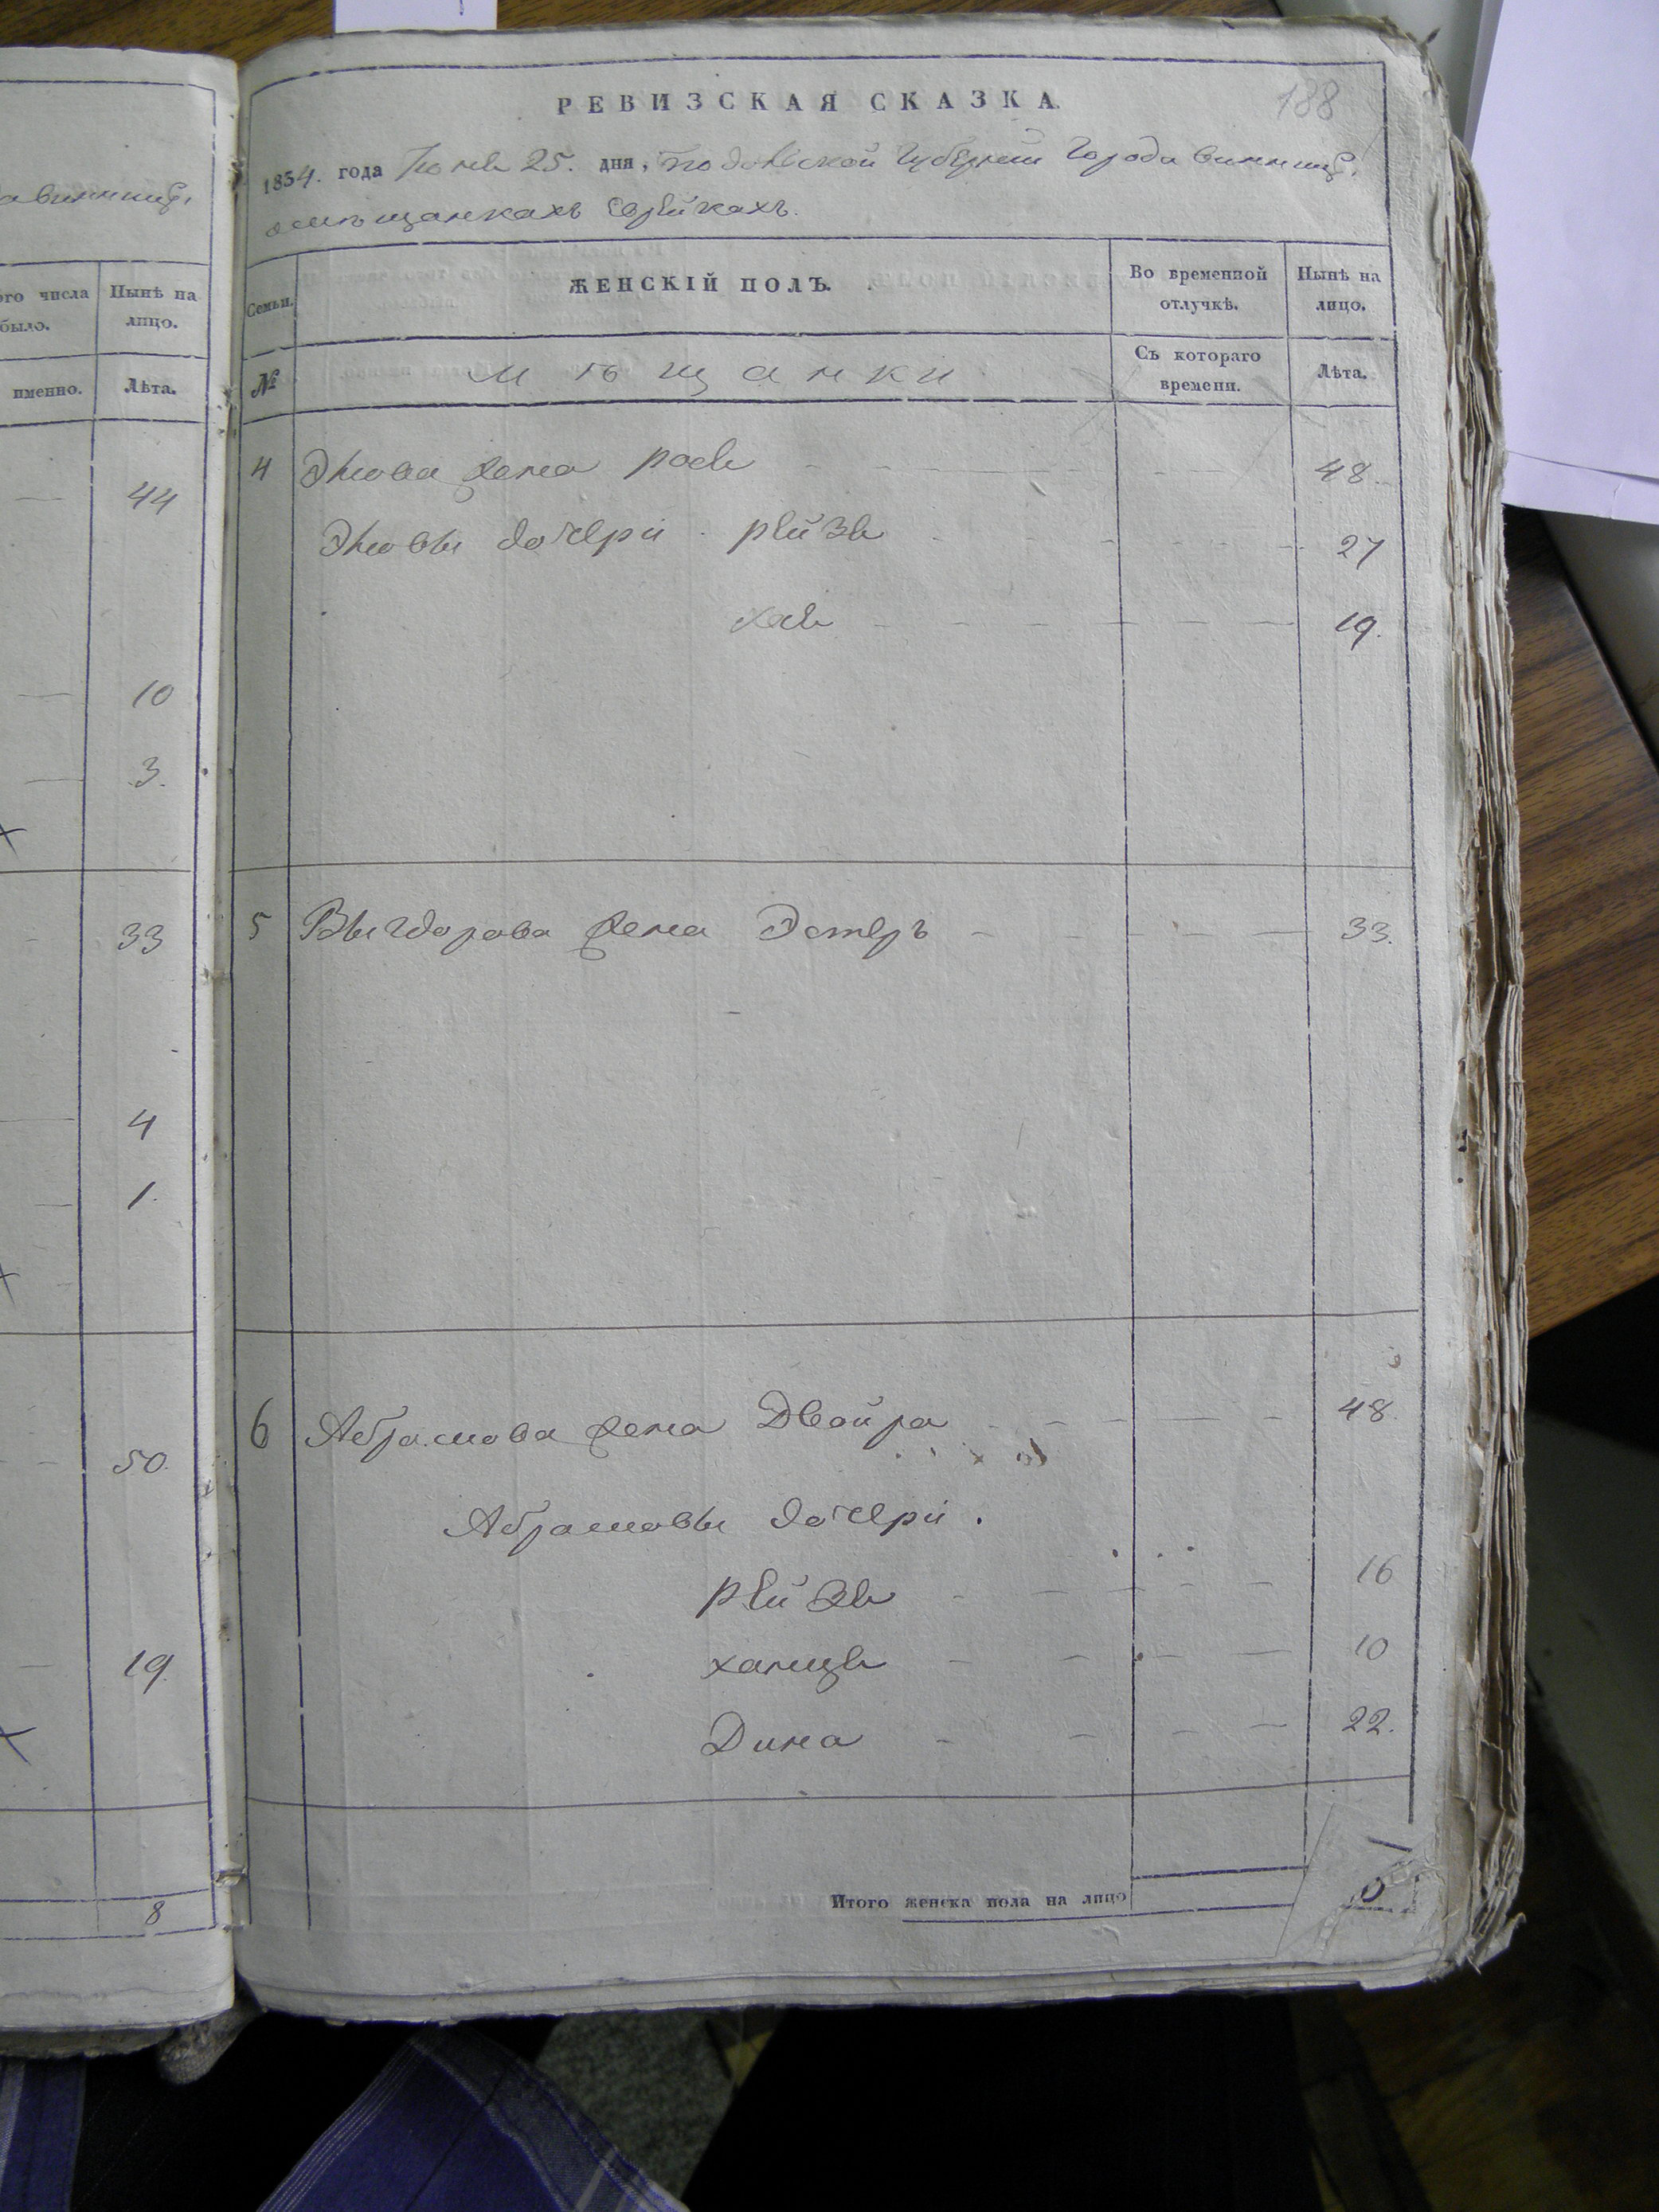 а винниц.
ого числа
было.
Нынѣ на
лицо.
именно.
Лѣта.
44
10
3.
33
4
1.
50.
19.
8
188
РЕВИЗСКАЯ СКАЗКА.
1854. года Іюня 25. дня, Подольской Губерніи Города Винниц.
о мѣщанкахъ Еврейкахъ.
Семьи.
ЖЕНСКІЙ ПОЛЪ.
Во временной
отлучкѣ.
Нынѣ на
лицо.
№
мѣщанки
Съ котораго
времени.
Лѣта.
4 жена 48.
дочери Рейзя 27
Хая 19.
5 Выгдорова жена Эстеръ 33.
6 Абрамова жена Двойра 48.
Абрамовы дочери.
Рейзя 16
Ханця 10
Дина 22.
Итого женска пола на лицо